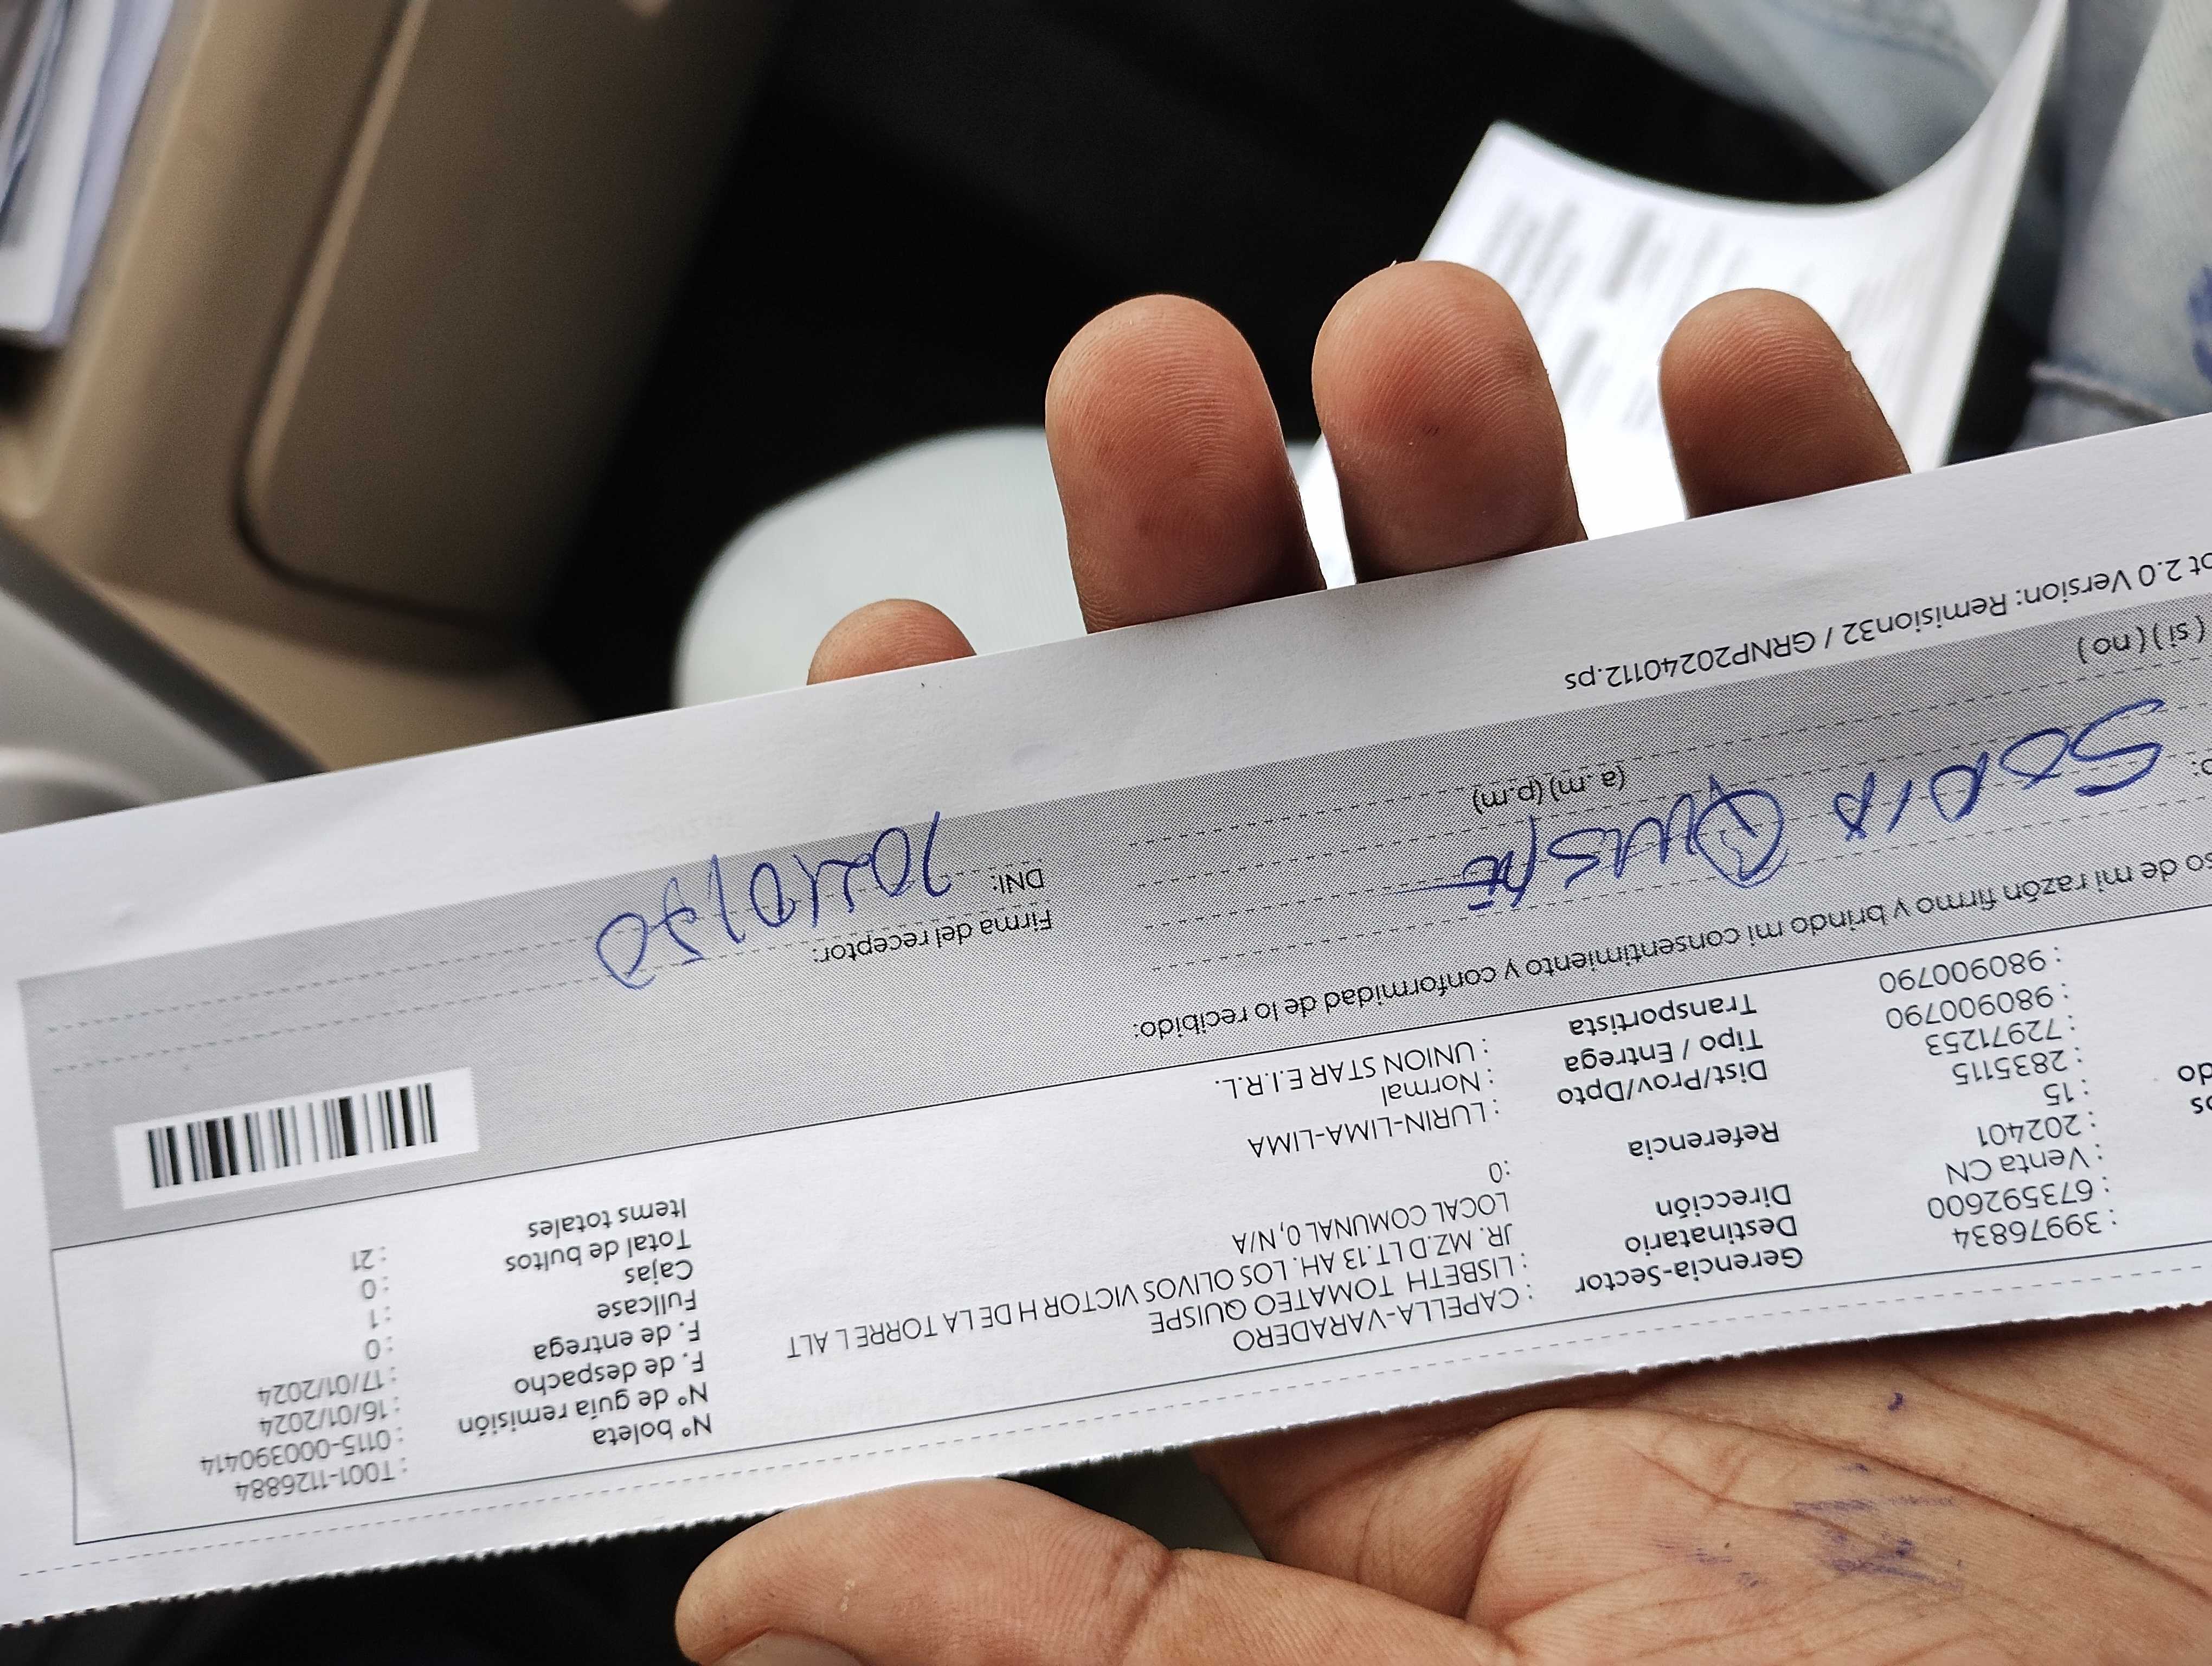 : 39976834
: 673592600
: Venta CN
: 202401
: 15
: 2835115
: 72971253
: 980900790
: 980900790
Gerencia-Sector : CAPELLA-VARADERO
Destinatario : LISBETH TOMATEO QUISPE
Dirección JR. MZ.D LT.13 AH. LOS OLIVOS VICTOR H DE LA TORRE L ALT
LOCAL COMUNAL 0, N/A
Referencia :0
Dist/Prov/Dpto : LURIN-LIMA-LIMA
Tipo / Entrega : Normal
Transportista : UNION STAR E.I.R.L.
Nº boleta : T001-1126884
Nº de guía remisión : 0115-000390414
F. de despacho : 16/01/2024
F. de entrega : 17/01/2024
Fullcase : 0
Cajas : 1
Total de bultos : 0
Items totales : 21
de mi razón firmo y brindo mi consentimiento y conformidad de lo recibido:
SONIA QUISPE
(a.m) (p.m)
Firma del receptor:
DNI:
( si ) ( no )
2.0 Version: Remision32 / GRNP20240112.ps